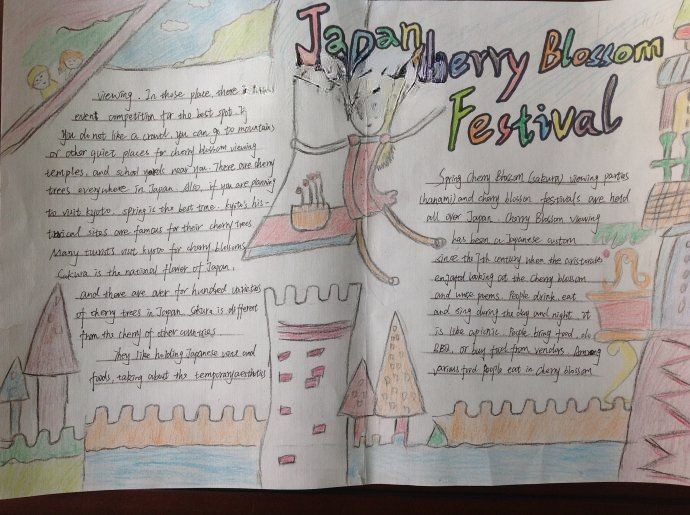 Japan Cherry Blossom
Festival
viewing. In those place, there is
event competition for the best spot. If
You do not like a crowd, you can go to mountains
or other quiet places for cherry blossom viewing
temples, and school yards near you. There are cherry
trees everywhere in Japan. Also, if you are planning
to visit kyoto, spring is the best time. kyoto's his-
torical sites are famous for their cherry trees
Many tourists visit kyoto for cherry blossoms
Sakura is the national flower of Japan.
and there are over for hundred varieties
of cherry trees in Japan. Sakura is different
from the cherry of other countries
They like holding Japanese and
foods, taking about the temporary aesthetics
Spring Cherry Blossom (sakura) viewing parties
(hanami) and cherry blossom festivals are held
all over Japan. Cherry Blossom viewing
has been a Japanese custom
since the 7th century when the aristocrates
enjoyed looking at the cherry blossom
and wrose poems. People drink, eat
and sing during the day and night. it
is like a picnic. People bring food, do
BBQ, or buy food from vendors. Among
various food people eat in cherry blossom